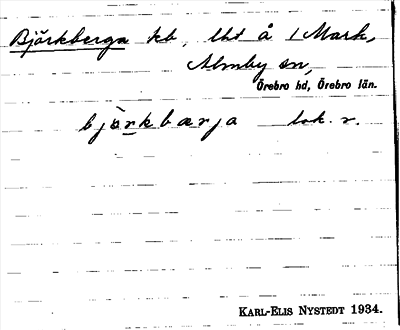 Björkberga kb, lht å 1 Mark,
Almby sn,
Örebro hd, Örebro län.
bjö̀rkbærja lok. r.
KARL-ELIS NYSTEDT 1934.